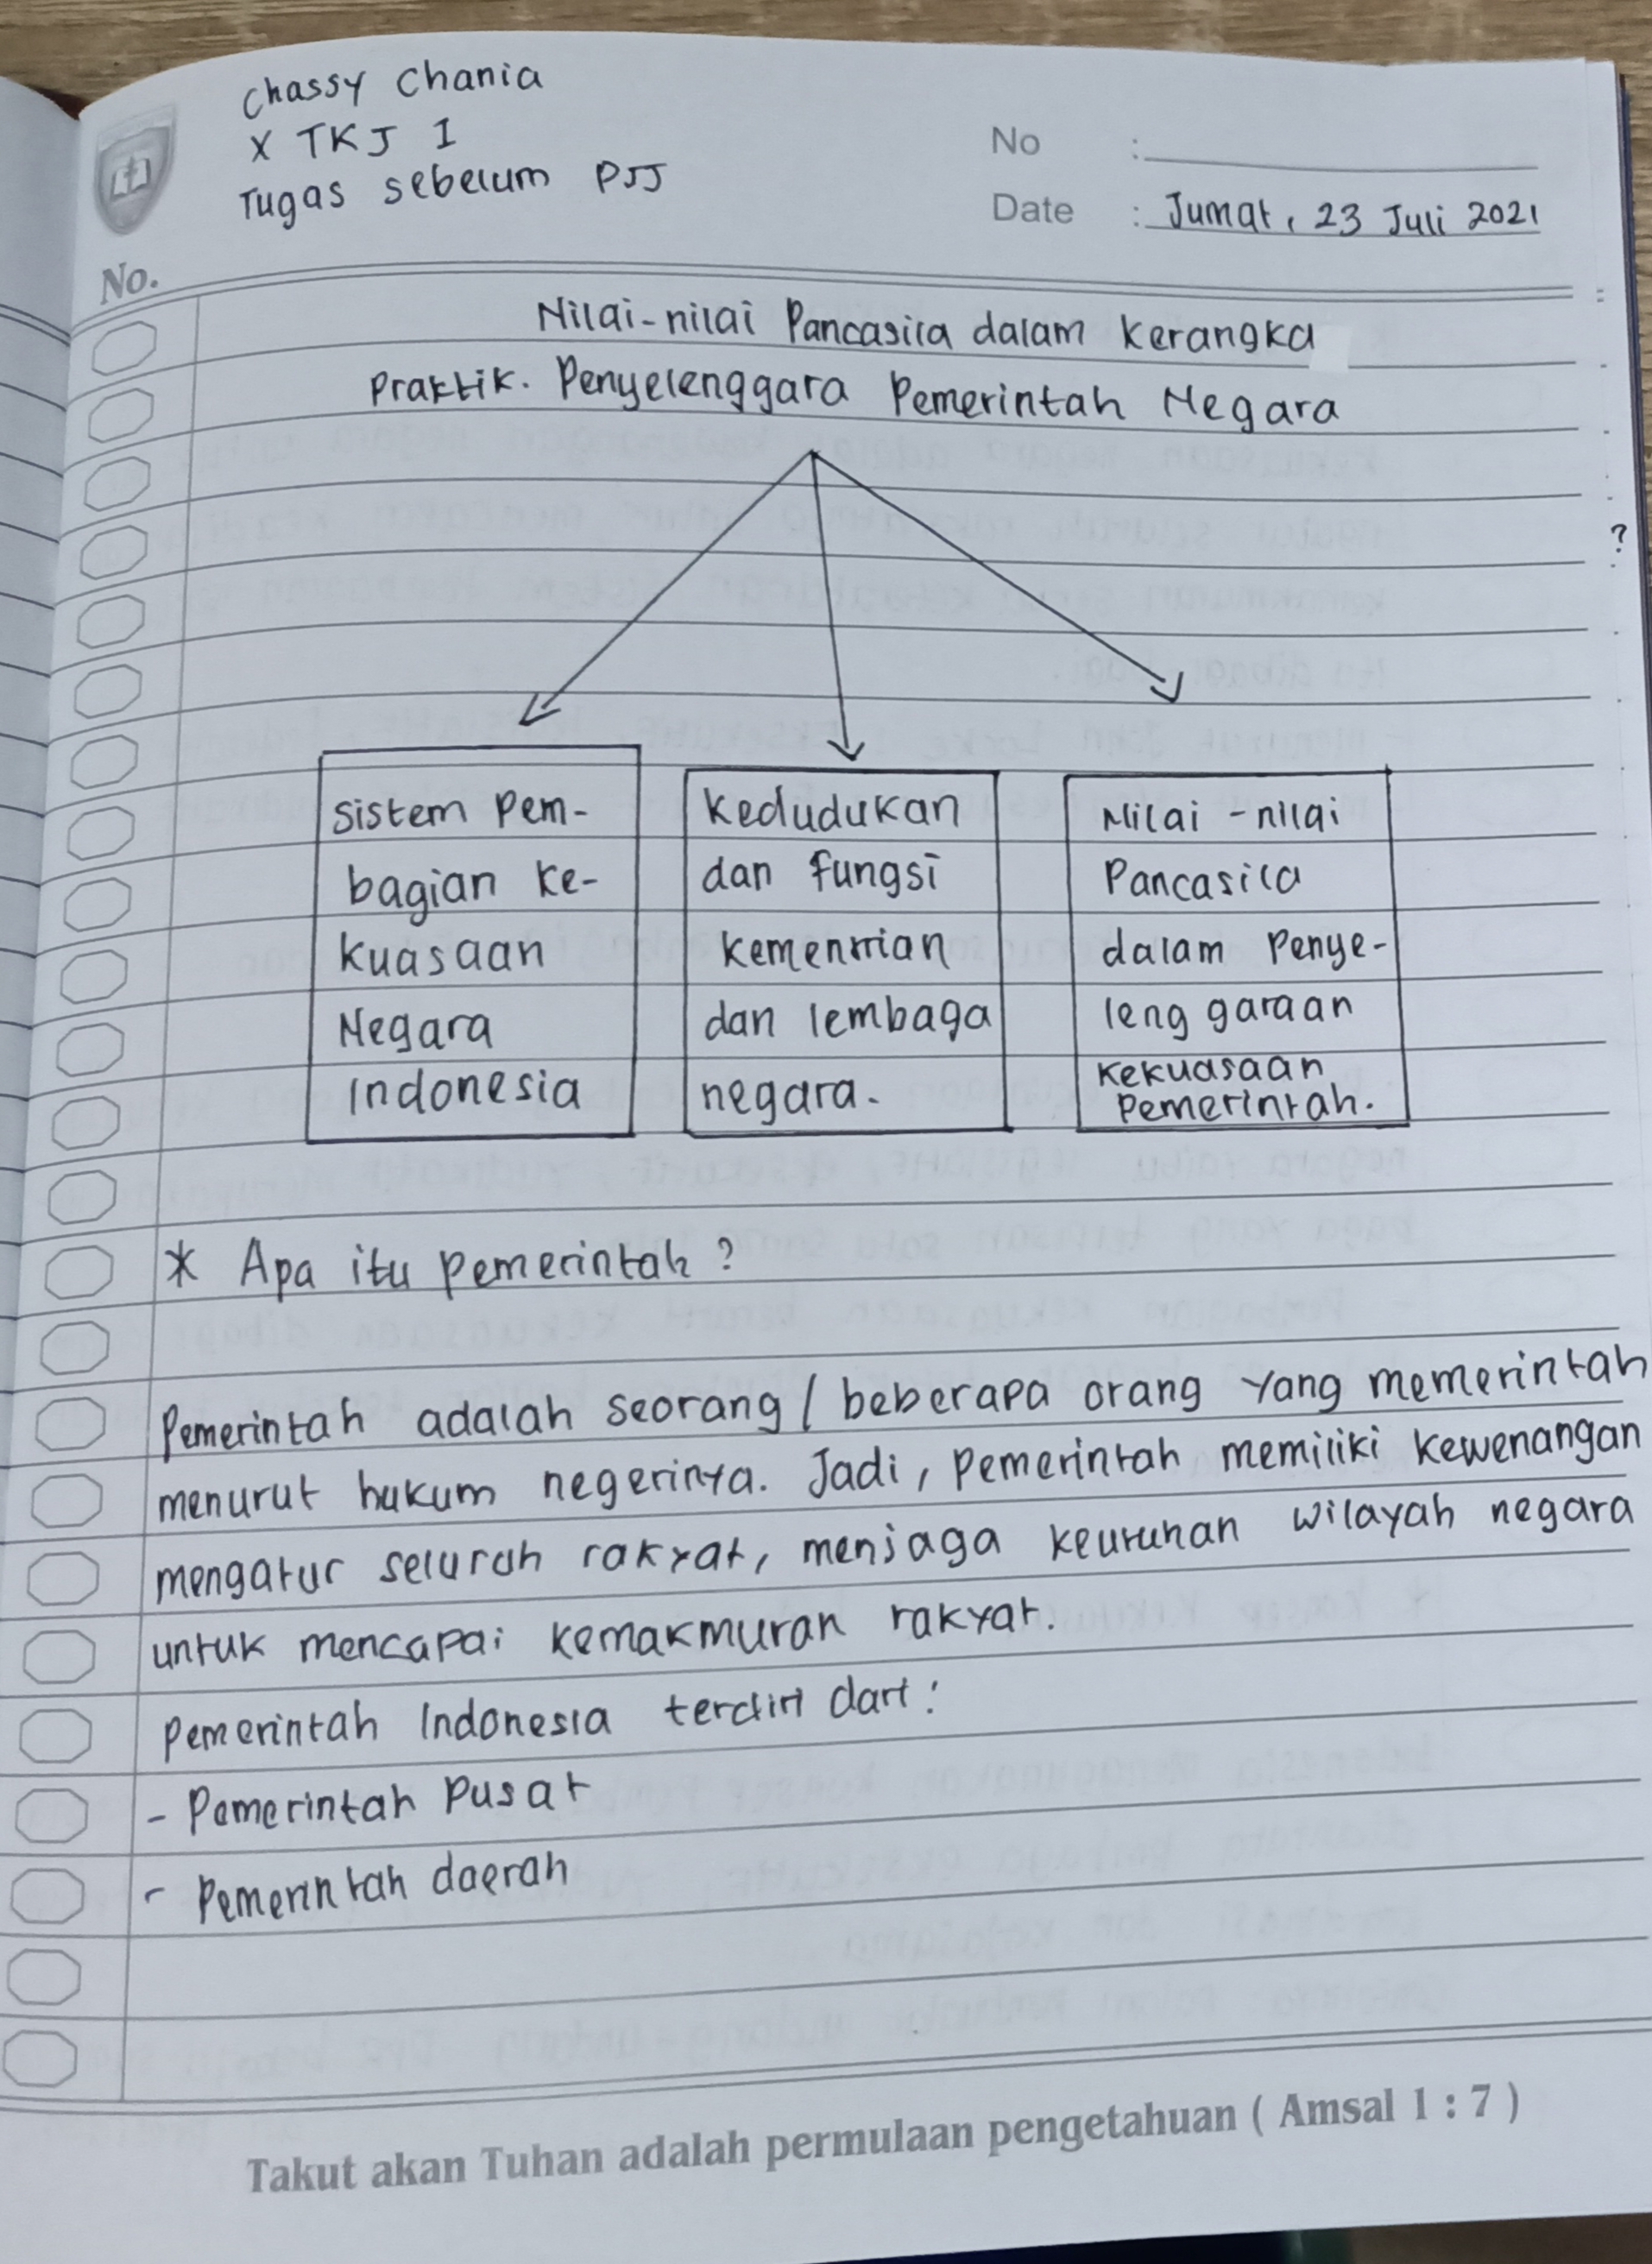 Chassy Chania
X TKJ I
Tugas sebelum PJJ
No :
Date : Jumat, 23 Juli 2021
No.
Nilai-nilai Pancasila dalam kerangka
Praktik. Penyelenggara Pemerintah Negara
?
sistem Pem-
bagian ke-
kuasaan
Negara
Indonesia
kedudukan
dan fungsi
kementrian
dan lembaga
negara.
Nilai-nilai
Pancasila
dalam Penye-
lenggaraan
kekuasaan
Pemerintah.
* Apa itu pemerintah?
Pemerintah adalah seorang / beberapa orang yang memerintah
menurut hukum negerinya. Jadi, pemerintah memiliki kewenangan
mengatur seluruh rakyat, menjaga keutuhan wilayah negara
untuk mencapai kemakmuran rakyat.
Pemerintah Indonesia terdiri dari:
- Pemerintah Pusat
- Pemerintah daerah
Takut akan Tuhan adalah permulaan pengetahuan ( Amsal 1 : 7 )